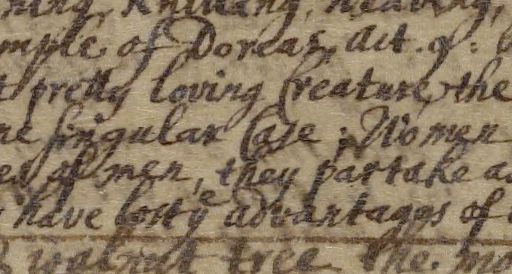 Knitting, weaving,
mple of Dorcas, Act. 9:
t pretty loving Creature, the
ne singular Case; Women
es of men, they partake
have lost ye advantages of
walnut tree the mo